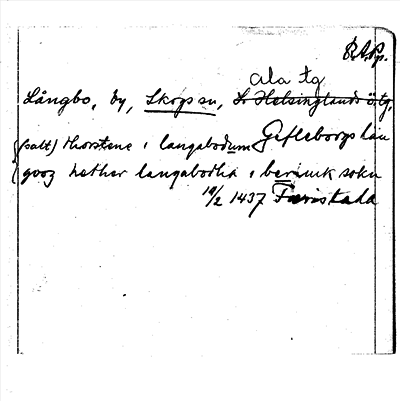 R.A.P.
ala tg
Långbo, by, Skogs sn, S. Helsinglands ö. tg,
Gefleborgs län
(salt) thorstene i langabodum
gooz nether langabodha i bersuik sokn
19/2 1437 Faristada